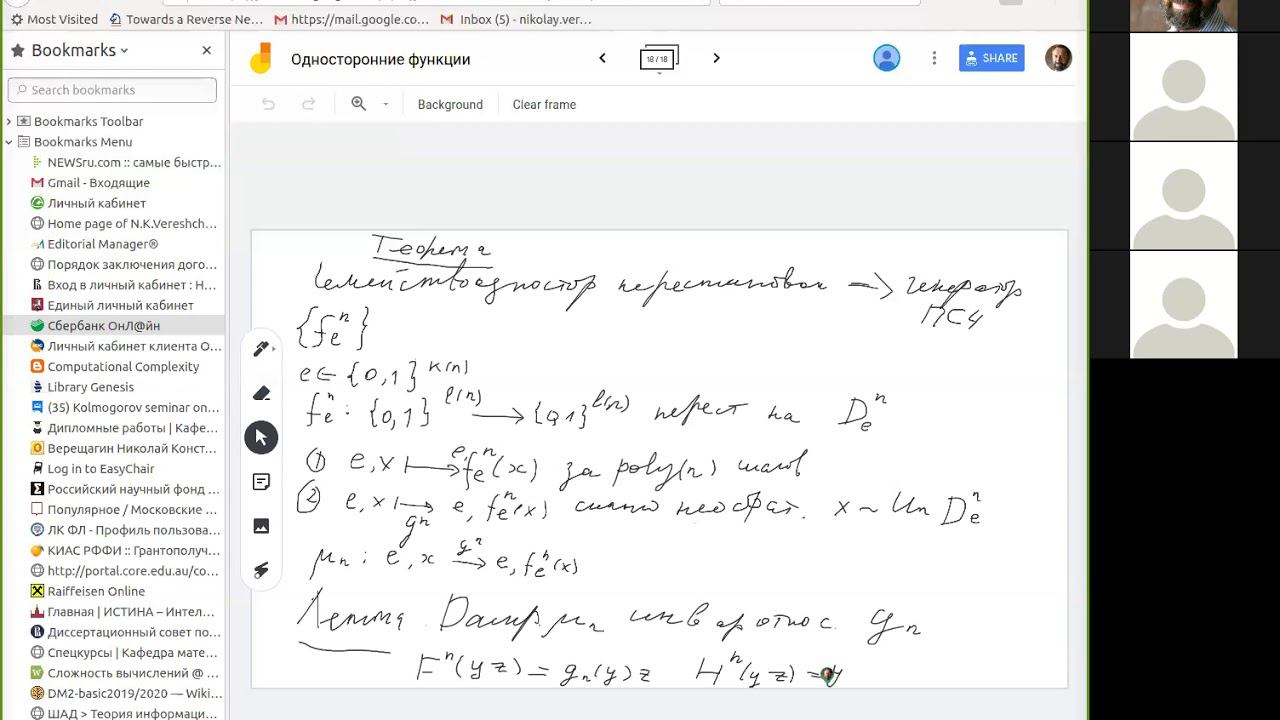 Most Visited Towards a Reverse Ne... https://mail.google.co... Inbox (5) - nikolay.ver...
Bookmarks
Search bookmarks
Bookmarks Toolbar
Bookmarks Menu
NEWSru.com :: самые быстр...
Gmail - Входящие
Личный кабинет
Home page of N.K.Vereshch...
Editorial Manager®
Порядок заключения дого...
Вход в личный кабинет : Н...
Единый личный кабинет
Сбербанк ОнЛ@йн
Личный кабинет клиента О...
Computational Complexity
Library Genesis
(35) Kolmogorov seminar on...
Дипломные работы | Кафе...
Верещагин Николай Конст...
Log in to EasyChair
Российский научный фонд ...
Популярное / Московские ...
ЛК ФЛ - Профиль пользова...
КИАС РФФИ :: Грантополуч...
http://portal.core.edu.au/co...
Raiffeisen Online
Главная | ИСТИНА – Интел...
Диссертационный совет по...
Спецкурсы | Кафедра мате...
Сложность вычислений @ ...
DM2-basic2019/2020 — Wiki...
ШАД > Теория информаци...
Односторонние функции
18 / 18
SHARE
Background Clear frame
Теорема
Семейство одностор перестановок => генератор
ПСЧ
{f_e^n}
e ∈ {0,1}^k(n)
f_e^n : {0,1}^l(n) → {0,1}^l(n) перест на D_e^n
① e, x ↦ e, f_e^n(x) за poly(n) шагов
② e, x ↦ e, f_e^n(x) сильно необрат. x ~ Un D_e^n
g^n
μ_n : e, x →^{g^n} e, f_e^n(x)
Лемма Распр μ_n инвар относ. g_n
F^n(yz) = g_n(y)z H^n(yz) = y